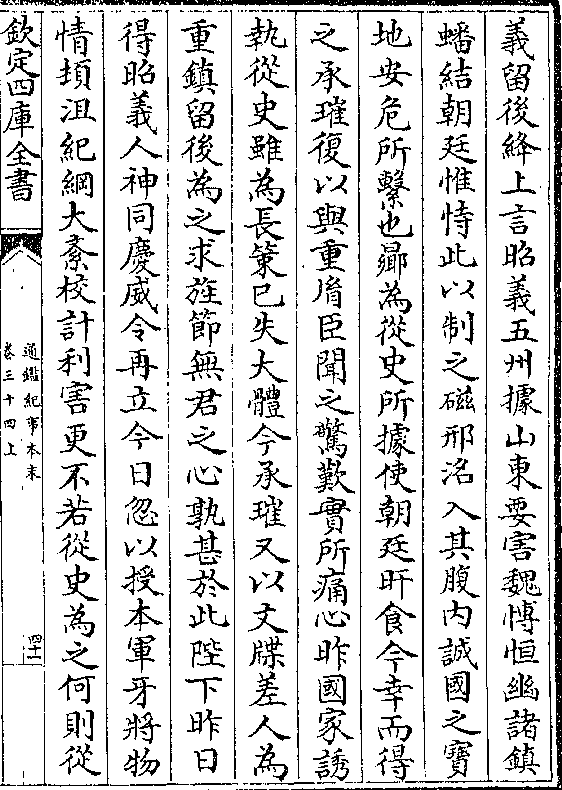 義留後絳上言昭義五州據山東要害魏愽恒幽諸鎮
蟠結朝廷惟恃此以制之磁邢洺入其腹内誠國之寶
地安危所繫也曏為從史所據使朝廷旰食今幸而得
之承璀復以與重𦙍臣聞之驚歎實所痛心昨國家誘
執從史雖為長策已失大體今承璀又以文牒差人為
重鎮留後為之求旌節無君之心孰甚於此陛下昨日
得昭義人神同慶威令再立今日忽以授本軍牙將物
情頓沮紀綱大紊校計利害更不若從史為之何則從
欽定四庫全書
通鑑紀事本末
卷三十四上
四十一